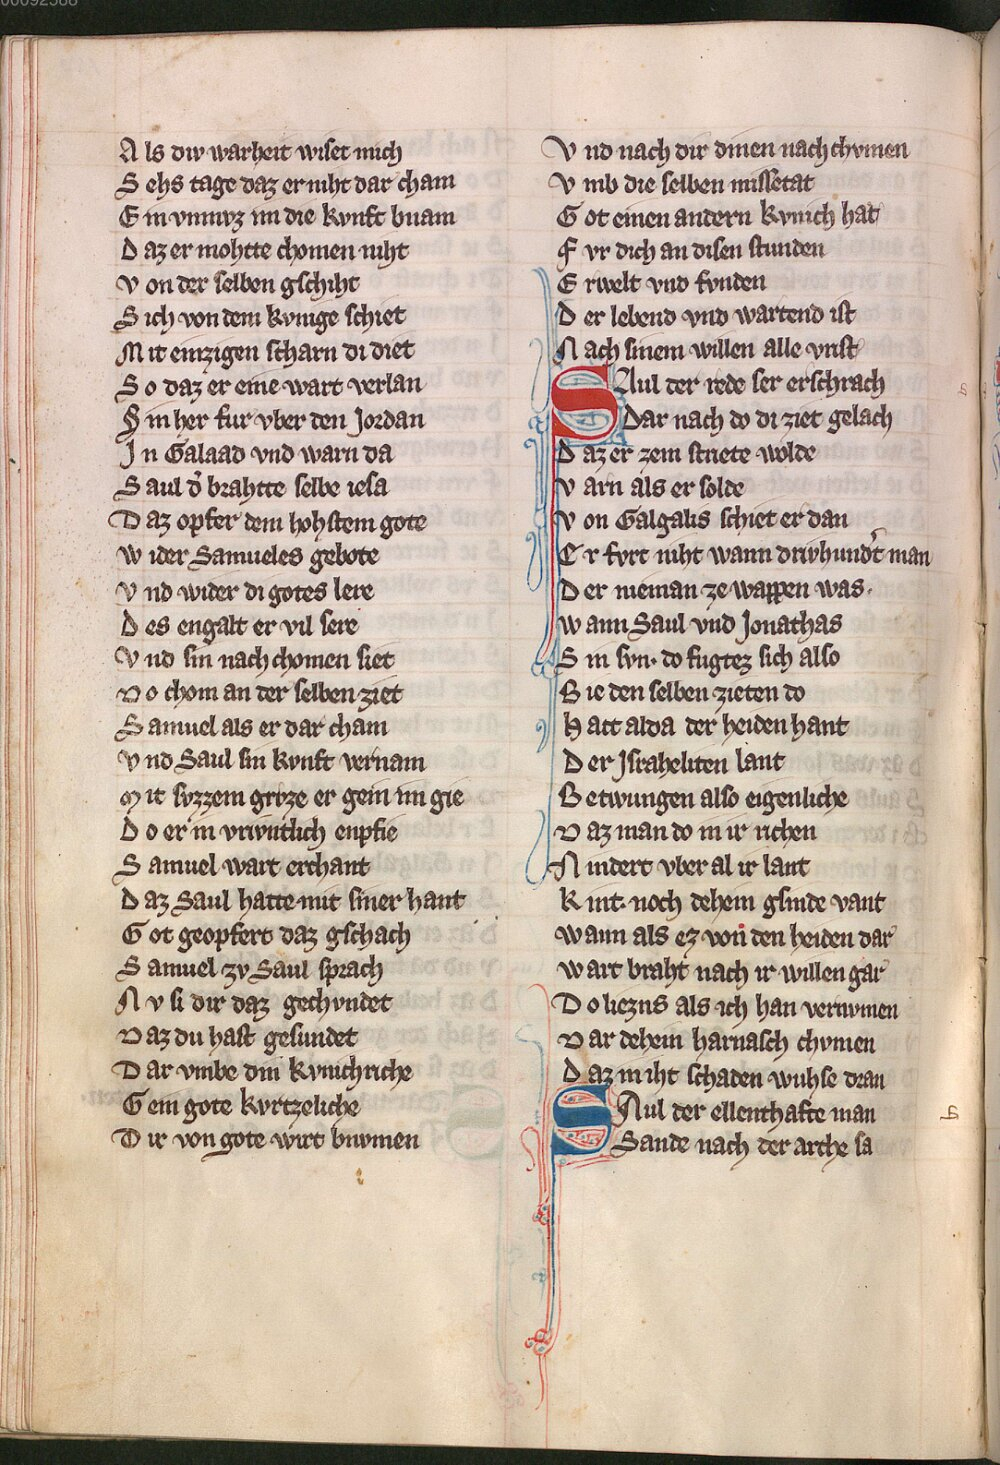 00092588
Als div warheit wiset mich
Sehs tage daz er niht dar cham
Ein vnmvz im die kvnft bnam
Daz er mohtte chomen niht
Von der selben gschiht
Sich von dem kvnige schiet
Mit einzigen scharn di diet
So daz er eine wart verlan
Hin her fur vber den Jordan
Jn Galaad vnd warn da
Saul do brahtte selbe iesa
Daz opfer dem hohstem gote
Wider Samueles gebote
Vnd wider di gotes lere
Des engalt er vil sere
Vnd sin nachchomen siet
Do chom an der selben ziet
Samuel als er dar cham
Vnd Saul sin kvnft vernam
Mit svzzem grvze er gein im gie
Do er in vrivntlich enpfie
Samuel wart erchant
Daz Saul hatte mit siner hant
Got geopfert daz gschach
Samuel zv Saul sprach
Nv si dir daz gechvndet
Daz du hast gesundet
Dar vmbe din kvnichriche
Gein gote kvrtzeliche
Dir von gote wirt bnvmen
Vnd nach dir dinen nachchvmen
Vmb die selben missetat
Got einen andern kvnich hat
Fvr dich an disen stunden
Erwelt vnd fvnden
Der lebend vnd wartend ist
Nach sinem willen alle vrist
SAul der rede ser erschrach
Dar nach do di ziet gelach
Daz er zem striete wolde
Varn als er solde
Von Galgalis schiet er dan
Er fvrt niht wann drivhundt man
Der nieman ze wappen was
Wann Saul vnd Jonathas
Sin svn. do fugtez sich also
Bie den selben zieten do
Hatt alda der heiden hant
Der Jsraheliten lant
Betwungen also eigenliche
Daz man do in ir richen
Nindert vber al ir lant
Kint. noch dehein gsinde vant
Wann als ez von den heiden dar
Wart braht nach ir willen gar
Do liezns als ich han vernvmen
Dar dehein harnasch chvmen
Daz in iht schaden wuhse dran
SAul der ellenthafte man
Sande nach der arche sa